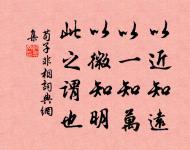 以近知遠
以一知萬
以微知明
此之謂也
荀子非相詞典網
集